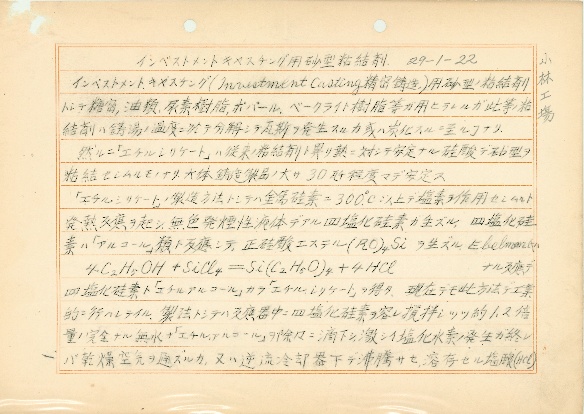 インベストメントキャスチング用砂型粘結剤. 29-1-22
小林工場
インベストメント,キャスチング(Investment Casting精密鋳造)用砂型ノ粘結剤
トシテ糖蜜,油類,尿素樹脂,ポバール,ベークライト樹脂等ガ用ヒラレルガ此等ノ粘
結剤ハ鋳湯ノ温度ニ於テ分解シテ瓦斯ヲ発生スルカ或ハ炭化スルニ至ルナリ.
然ルニ「エチルシリケート」ハ従来ノ粘結剤ト異リ熱ニ対シテ安定ナル硅酸デ砂型ヲ
粘結セシムルモノナリ 30 程度マデ安定ス
「エチルシリケート」製造方法トシテハ金属硅素ニ300℃以上デ塩素ヲ作用セシムルト
発熱反應ヲ起シ,無色発煙性液体デアル四塩化硅素ガ生ズル. 四塩化硅
素ハ「アルコール」類ト反應シテ,正硅酸エステル(RO)₄Siヲ生ズル Ebelman
4C₂H₅OH + SiCl₄ = Si(C₂H₅O)₄ + 4HCl ナル反應デ
四塩化硅素ト「エチルアルコール」カラ「エチルシリケート」ヲ得タ. 現在デモ此方法デ工業
的ニ行ハレテイル. 製法トシテハ反應器中ニ四塩化硅素ヲ容レ攪拌シツツ約1.5倍
量ノ完全ナル無水「エチルアルコール」ヲ徐々ニ滴下シ激シイ塩化水素ノ発生ガ終レ
バ乾燥空気ヲ通ズルカ,又ハ逆流冷却器下デ沸騰サセ,溶存セル塩酸(HCl)